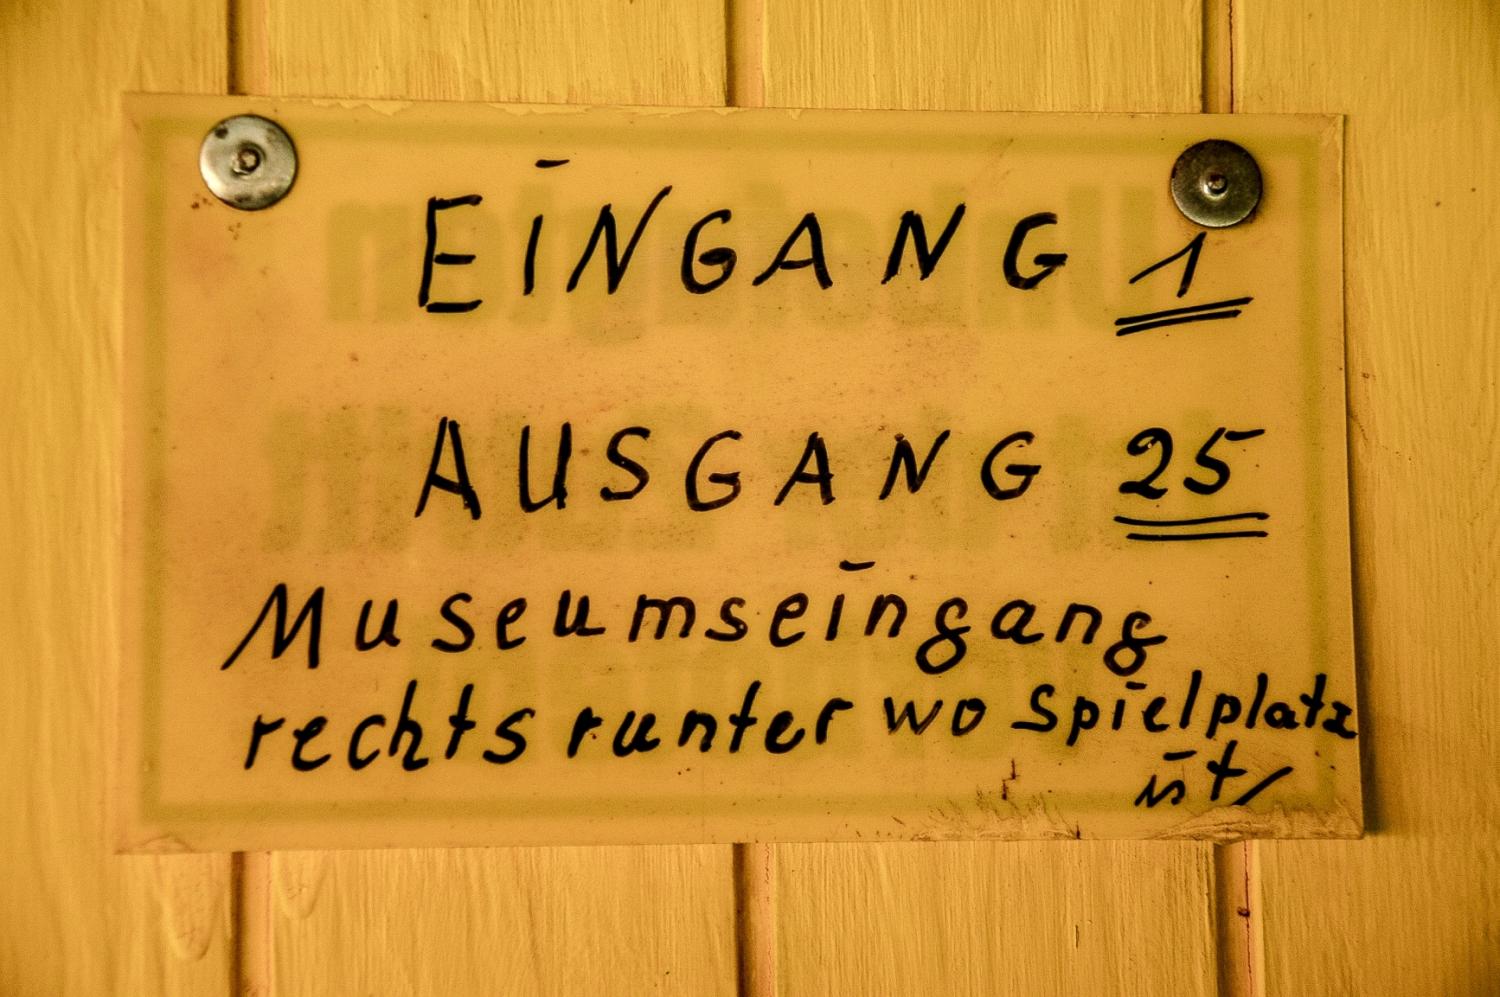 EINGANG 1
AUSGANG 25
Museumseingang
rechts runter wo Spielplatz
ist